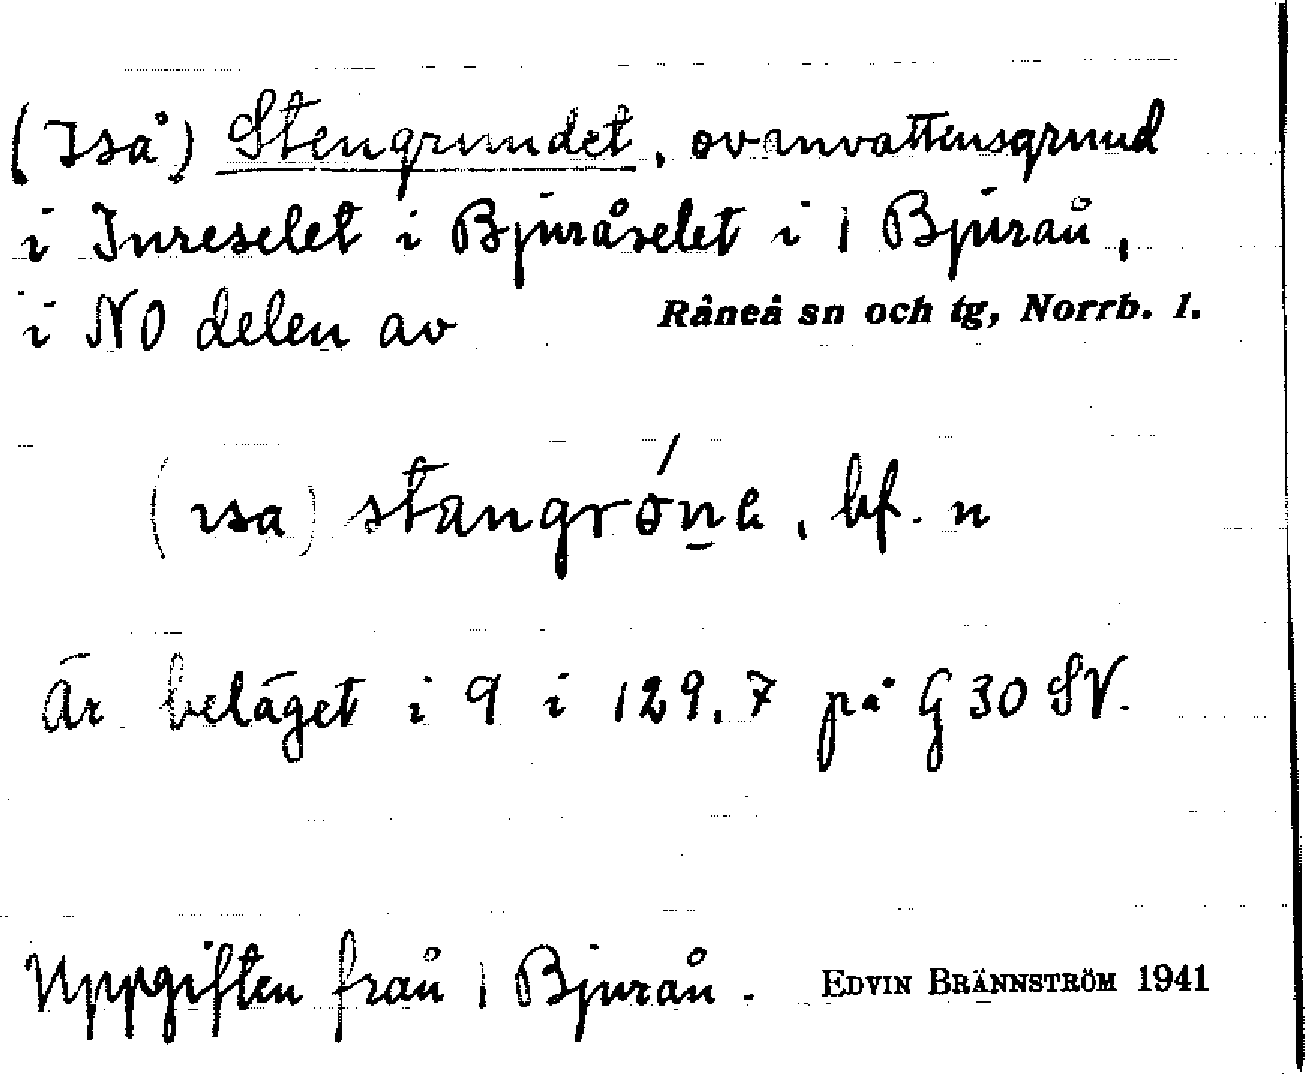 (Iså) Stengrundet, ovanvattensgrund
i Inreselet i Bjuråselet i 1 Bjurån,
i NO delen av Råneå sn och tg, Norrb. l.
(ısa) stangrón̲e, bf. n
Är beläget i 9 i 129.7 på G 30 SV.
Uppgiften från 1 Bjurån. EDVIN BRÄNNSTRÖM 1941